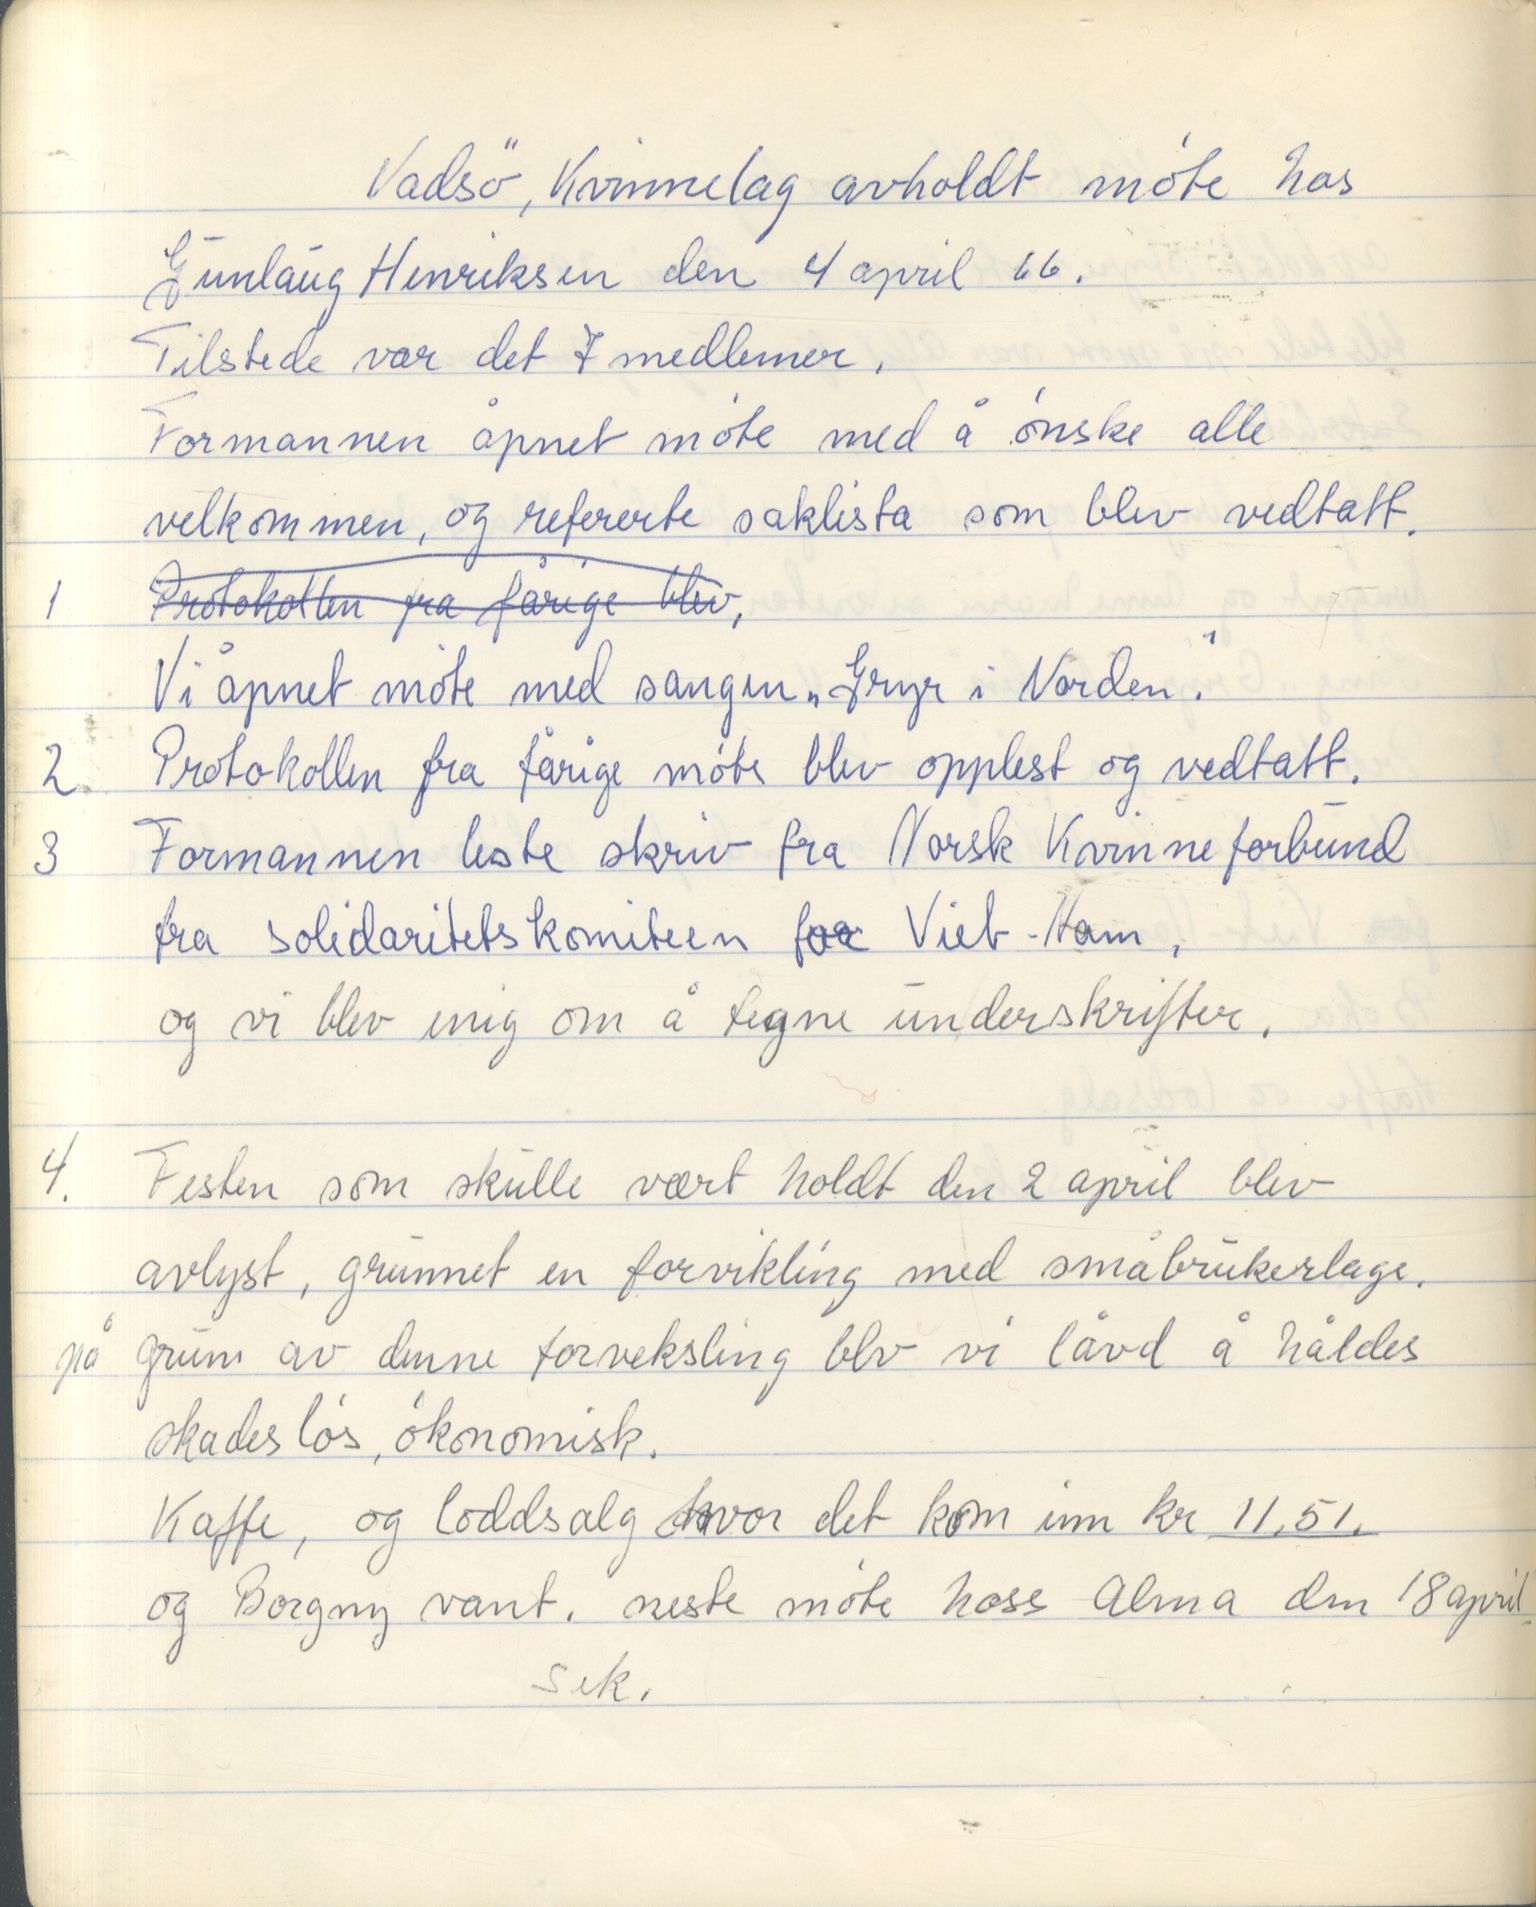 Vadsö, Kvinnelag avholdt móte hos
Gunlaug Henriksen den 4 april 66.
Tilstede var det 7 medlemer.
Formannen åpnet móte med å ónske alle
velkommen, og refererte saklista som blev vedtatt.
1 Protokollen fra fårige blev,
Vi åpnet móte med sangen „Gryr i Norden".
2 Protokollen fra fårige móte blev opplest og vedtatt.
3 Formannen leste skriv fra Norsk Kvinneforbund
fra solidaritetskomiteen for Viet-Nam,
og vi blev enig om å tegne underskrifter.
4. Festen som skulle vært holdt den 2 april blev
avlyst, grunnet en forvikling med småbrukerlage.
på grunn av denne forveksling blv vi låvd å håldes
skadeslós, ókonomisk.
Kaffe, og loddsalg hvor det kom inn kr 11,51.
og Borgny vant. neste móte hoss Alma den 18 april
sek.